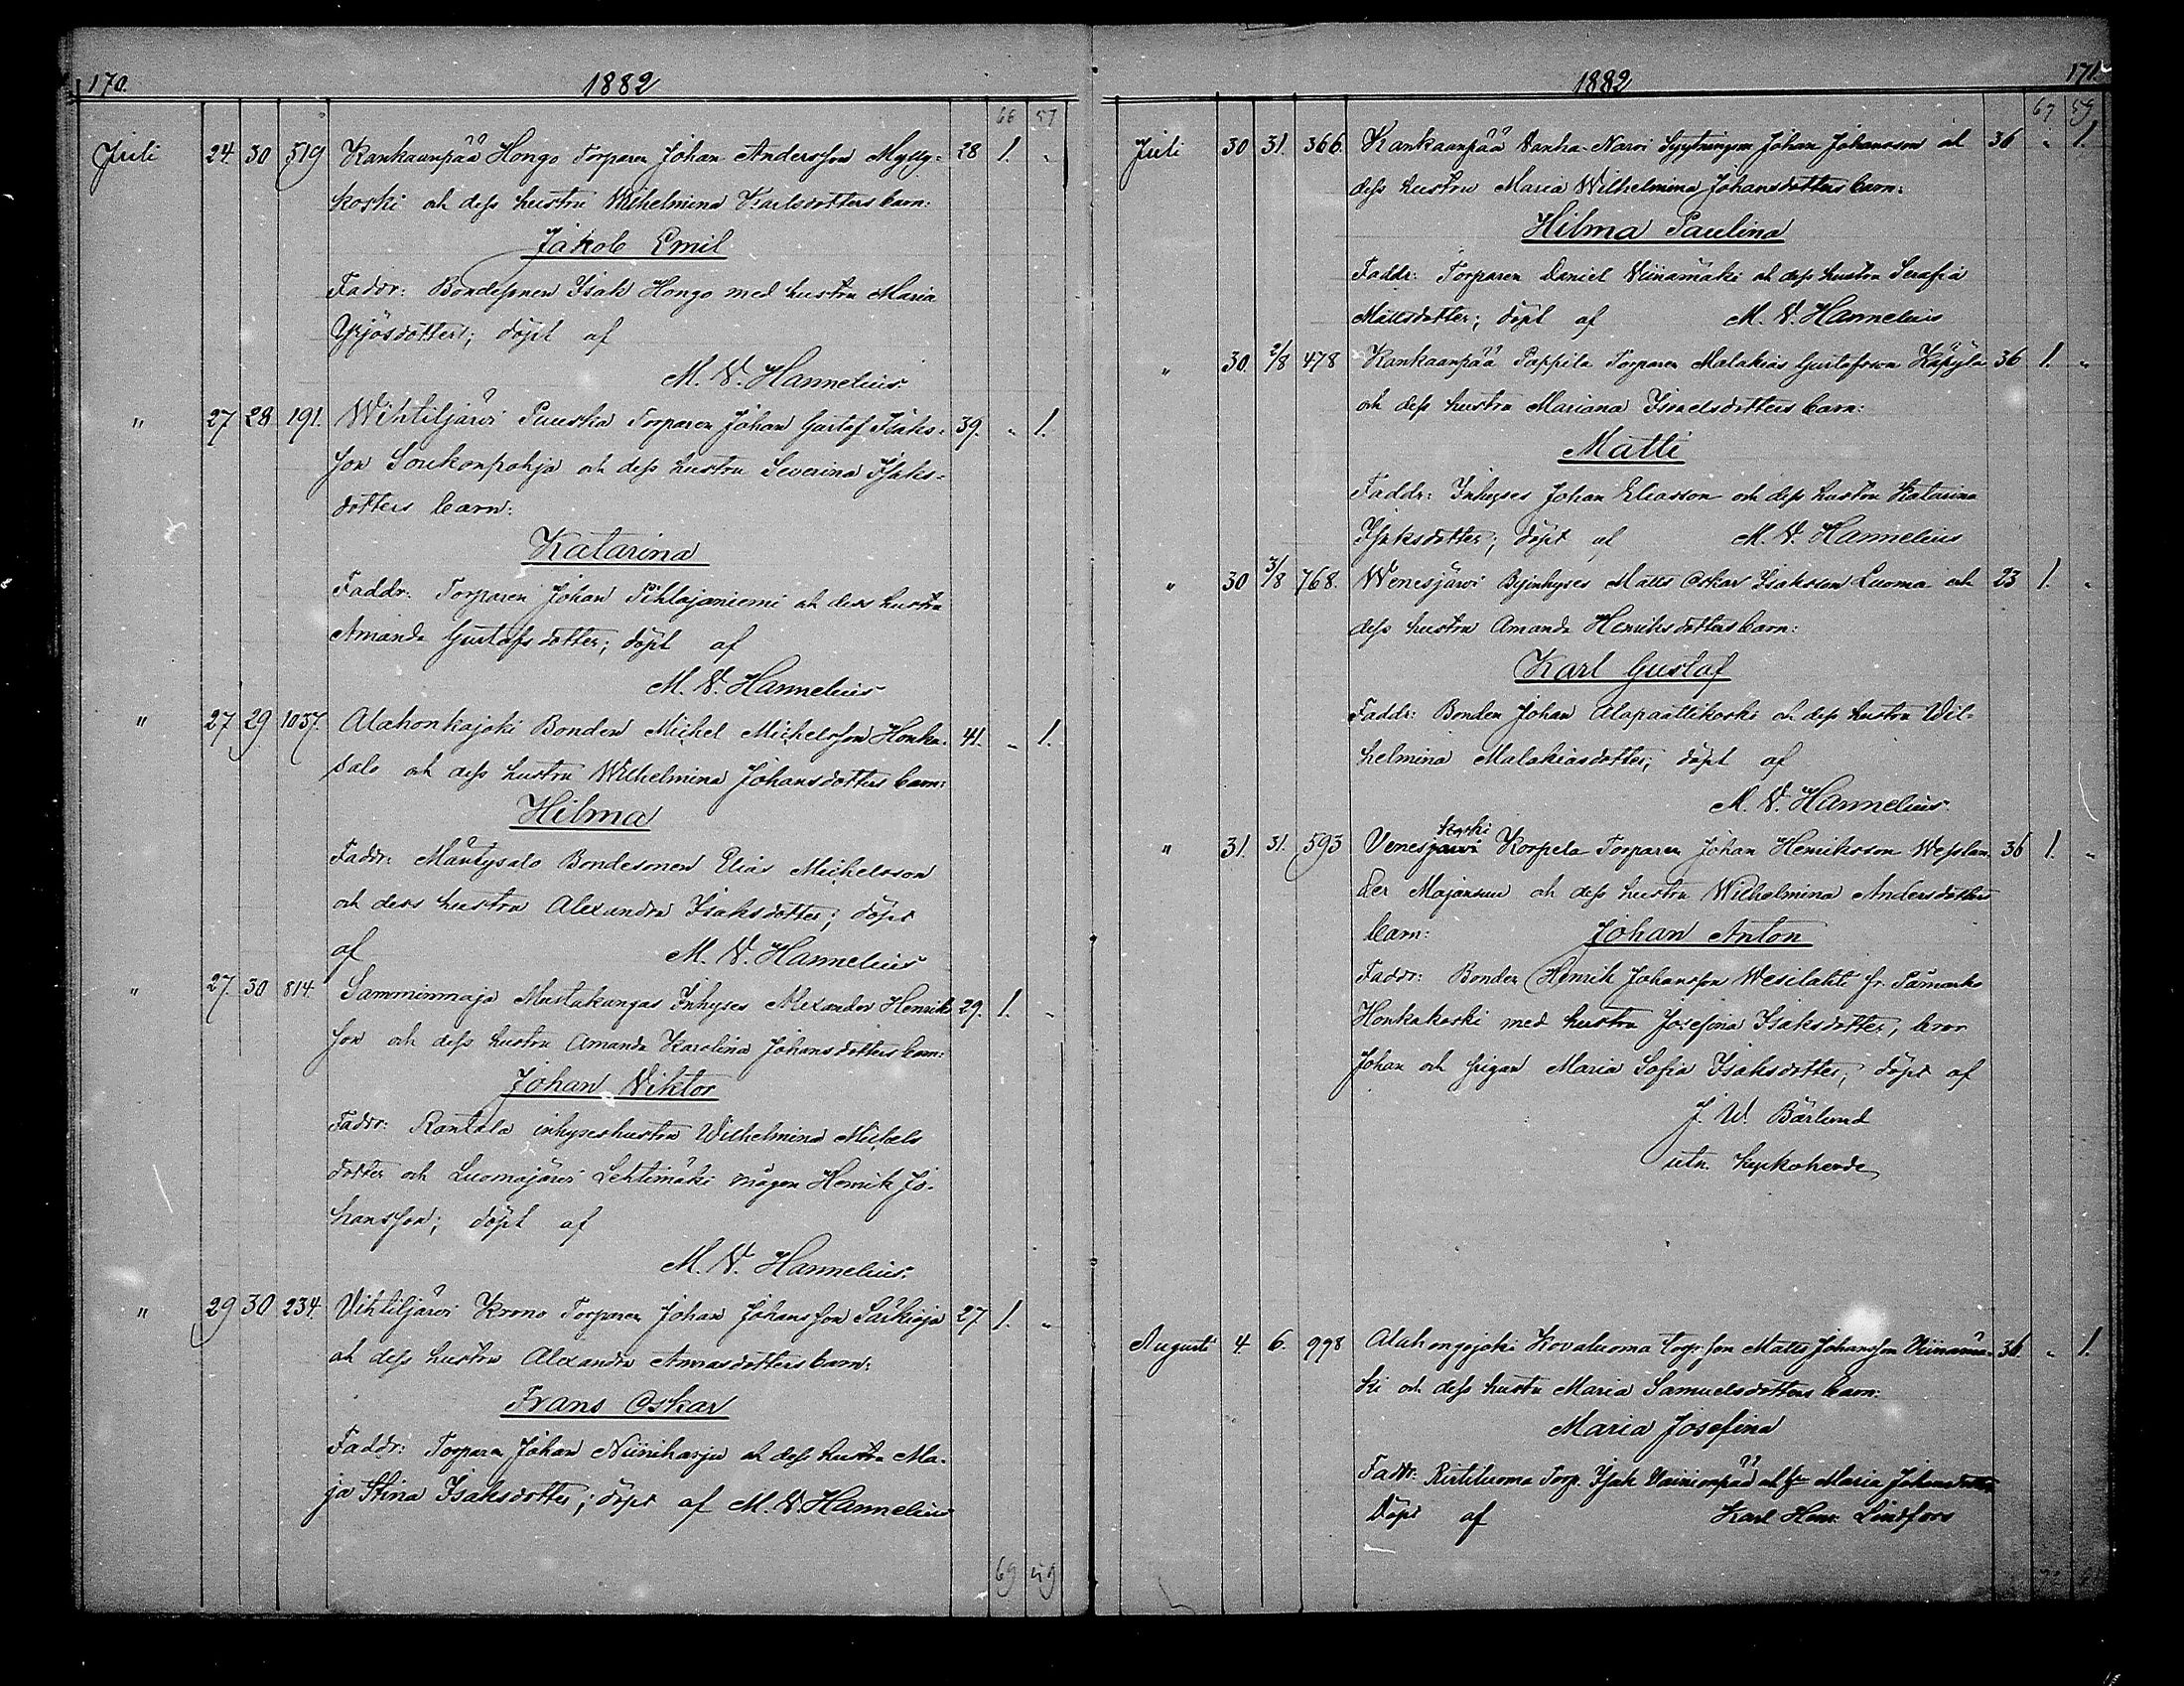 170.
1882
66 57
Juli 24. 30 519 Kankaanpää Hongo Torparen Johan Andersson Mylly- 28 1. "
koski och dess hustru Wilhelmina Karlsdotters barn:
Jakob Emil
Faddr: Bondesonen Isak Hongo med hustru Maria
Yrjösdotter; döpt af
M. V. Hannelius.
" 27 28 191. Wihtiljärvi Puuska Torparen Johan Gustaf Isaks- 39. " 1.
son Soukonpohja och dess hustru Severina Isaks-
dotters barn:
Katarina
Faddr: Torparen Johan Pihlajaniemi och dess hustru
Amanda Gustafsdotter; döpt af
M. V. Hannelius
" 27 29 1037. Alahonkajoki Bonden Michel Michelsson Honka- 41. " 1.
salo och dess hustru Wilhelmina Johansdotters barn:
Hilma
Faddr: Mäntysalo Bondesonen Elias Michelsson
och dess hustru Alexandra Isaksdotter; döpt
af M. V. Hannelius
" 27. 30 814. Samminmaja Mustakangas Inhyses Alexander Henriks 29. 1. "
son och dess hustru Amanda Karolina Johansdotters barn:
Johan Viktor
Faddr: Rantala inhyseshustru Wilhelmina Michels
dotter och Luomajärvi Lehtimäki mågen Henrik Jo-
hansson; döpt af
M. V. Hannelius.
" 29 30 234. Vihtiljärvi Krono Torparen Johan Johansson Särkioja 27 1. "
och dess hustru Alexandra Amasdotters barn:
Frans Oskar
Faddr: Torparen Johan Niiniharju och dess hustru Ma-
ja Stina Isaksdotter; döpt af M. V. Hannelius
69 59
1882
171.
67 59
Juli 30 31. 366. Kankaanpää Vanha-Narvi Sytningsm. Johan Johansson och 36 " 1
dess hustru Maria Wilhelmina Johansdotters barn:
Hilma Paulina
Faddr: Torparen Daniel Viinamäki och dess hustru Serafia
Mattsdotter; döpt af M. V. Hannelius
" 30. 2/8 478 Kankaanpää Pappila Torparen Malakias Gustafsson Käpylä 36 1. "
och dess hustru Mariana Israelsdotters barn:
Matti
Faddr: Inhyses Johan Eliasson och dess hustru Katarina
Isaksdotter; döpt af M. V. Hannelius
" 30 3/8 768. Wenesjärvi Byinhyses Matts Oskar Isaksson Luoma och 23 1. "
dess hustru Amanda Henriksdotters barn:
Karl Gustaf
Faddr: Bonden Johan Alapaattikoski och dess hustru Wil-
helmina Malakiasdotter; döpt af
M. V. Hannelius.
koski
" 31. 31. 593 Venesjärvi Korpela Torparen Johan Henriksson Wesslan- 36 1. "
der Majansuu och dess hustru Wilhelmina Andersdotters
barn: Johan Anton
Faddr: Bonden Henrik Johansson Wesilahti fr. Påmarks
Honkakoski med hustru Josefina Isaksdotter, bror
Johan och pigan Maria Sofia Isaksdotter; döpt af
J. W. Bärlund
utn. kyrkoherde
Augusti 4. 6. 998 Alahongojoki Kovaluoma torp.son Matts Johansson Viinamä- 36. " 1.
ki och dess hustru Maria Samuelsdotters barn:
Maria Josefina
Faddr: Ristiluoma Torp. Isak Vainionpää och h. Maria Johansdotter
Döpt af Karl Henr. Lindfors